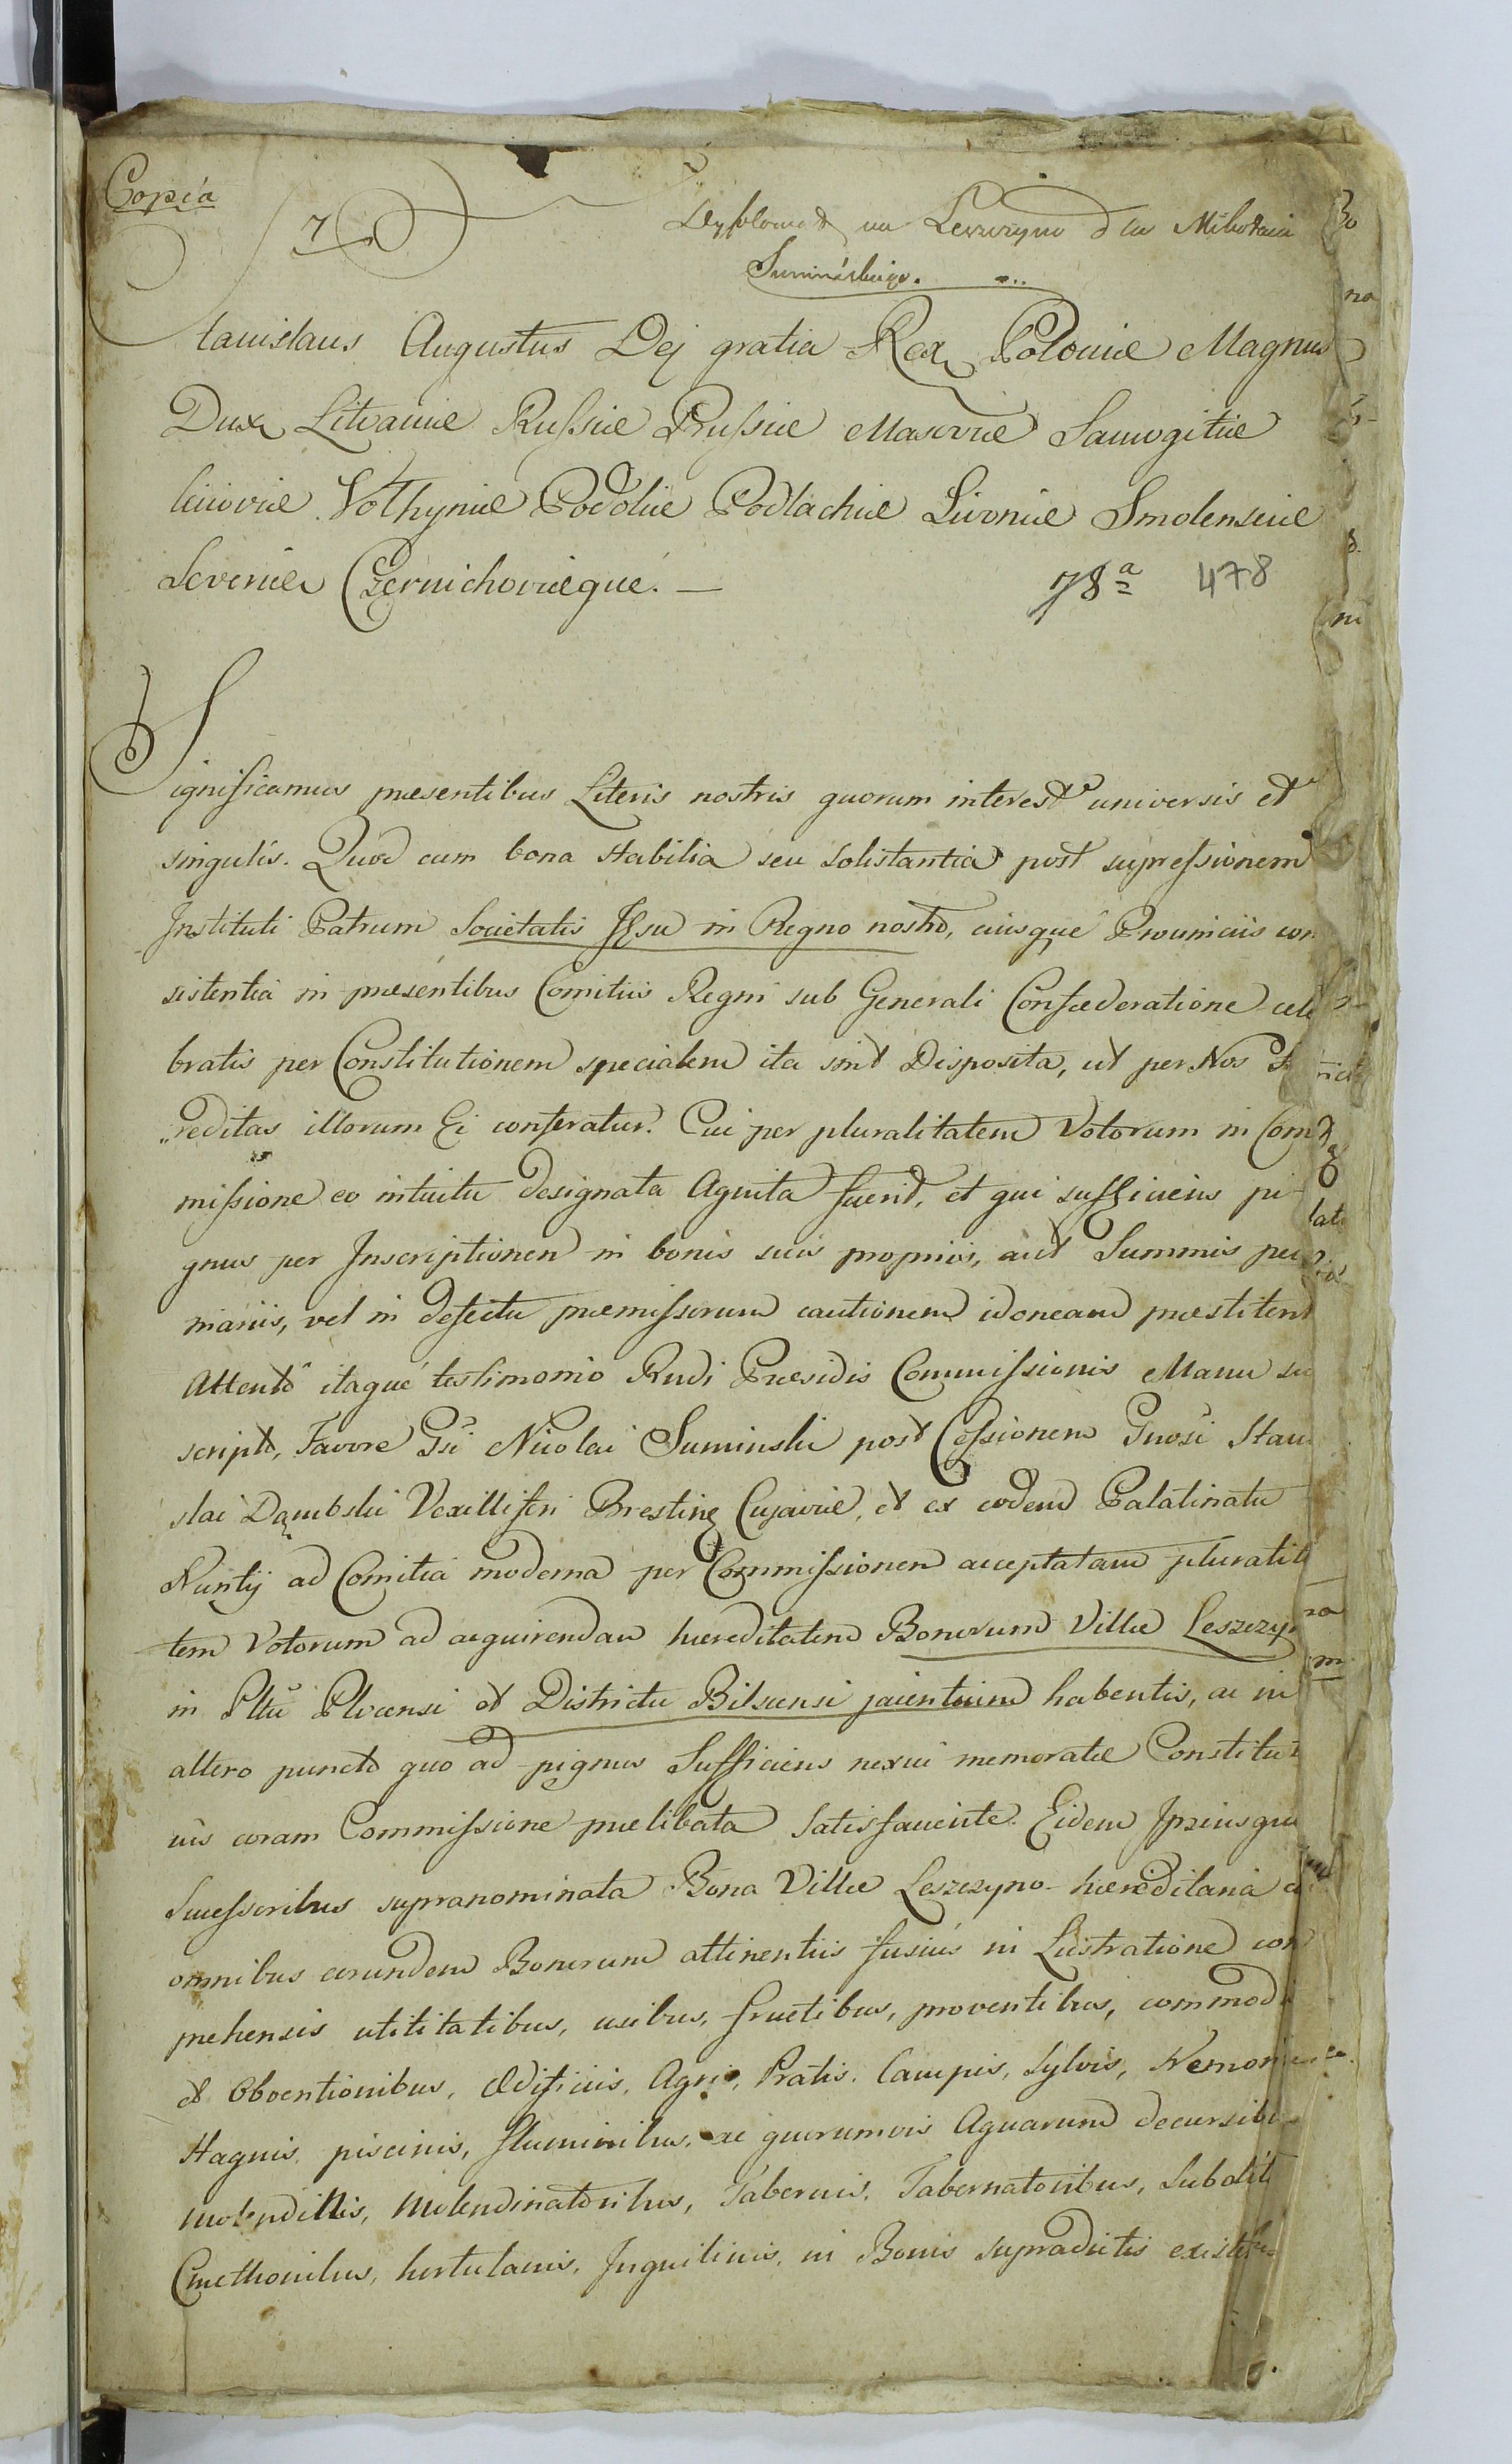 Copia
7
Dyplomat na Leszczyno dla Mikołaia
Suminskiego.
Stanislaus Augustus Dej gratia Rex Poloniæ Magnus
Dux Litvaniæ Russiæ Prussiæ Masoviæ Samogitiæ
Kiioviæ Volhyniæ Podoliæ Podlachiæ Livoniæ Smolensciæ
Severiæ Czernichoviæque. —
78a 478
Significamus præsentibus Literis nostris quorum interest universis et
singulis. Quod cum bona stabilia seu solistantia post supressionem
Instituti Patrum Societatis Jesu in Regno nostro, eiusque Provinciis con
sistentia in præsentibus Comitiis Regni sub Generali Confæderatione cele
bratis per Constitutionem specialem ita sint Disposita, ut per Nos
reditas illorum Ei conferatur. Cui per pluralitatem Votorum in Com
missione eo intuitu designata Agnita fuerit, et qui sufficiens pi
gnus per Inscriptionem in bonis suis propriis, aut Summis pecu
niariis, vel in defectu præmissorum cautionem idoneam præstiterit
Attento itaque testimonio Rndi Præsidis Commissionis Manu su
scripto, Favore Gsi Nicolai Suminski post Cessionem Gnosi Stani
slai Dąmbski Vexilliferi Brestinę Cujaviæ, et ex eodem Palatinatu
Nuntij ad Comitia moderna per Commissionem acceptatam pluralita
tem Votorum ad acquirendam hæreditatem Bonorum Villæ Leszczyn
in Pltu Plocensi et Districtu Bilscensi jacentium habentis, ac in
altero puncto quo ad pignus Sufficiens nexui memoratæ Constitut
nis coram Commissione prælibata Satisfaciente. Eidem Ipsiusque
Successoribus supranominata Bona Villæ Leszczyno hæreditaria
omnibus eorundem Bonorum attinentiis fusius in Lustratione com
prehensis utilitatibus, usibus, fructibus, proventibus, commodi
et Obventionibus, Ædificiis, Agris, Pratis, Campis, Sylvis, Nemori
Stagnis, piscinis, fluminibus, ac quorumvis Aquarum decursibus
molendinis, Molendinatoribus, Tabernis, Tabernatoribus, Subditi
Cmethonibus, hortulanis, Inquilinis, in Bonis supradictis existen